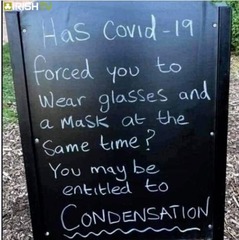 IRISH
Has Covid-19
forced you to
wear glasses and
a mask at the
same time?
You may be
entitled to
CONDENSATION